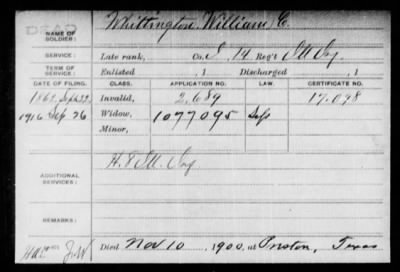 DEAD
NAME OF SOLDIER: Whittington, William C.
SERVICE: Late rank, Co. I, 14 Reg't Ill Inf.
TERM OF SERVICE: Enlisted , 1 Discharged , 1
DATE OF FILING. CLASS. APPLICATION NO. LAW. CERTIFICATE NO.
1862 Sept 22. Invalid, 2,689 17,098
1916 Sep 26 Widow, 1077095
Minor,
ADDITIONAL SERVICES: H. 8 Ill. Inf
REMARKS:
J.W. Died Nov 10 1900, at Texas